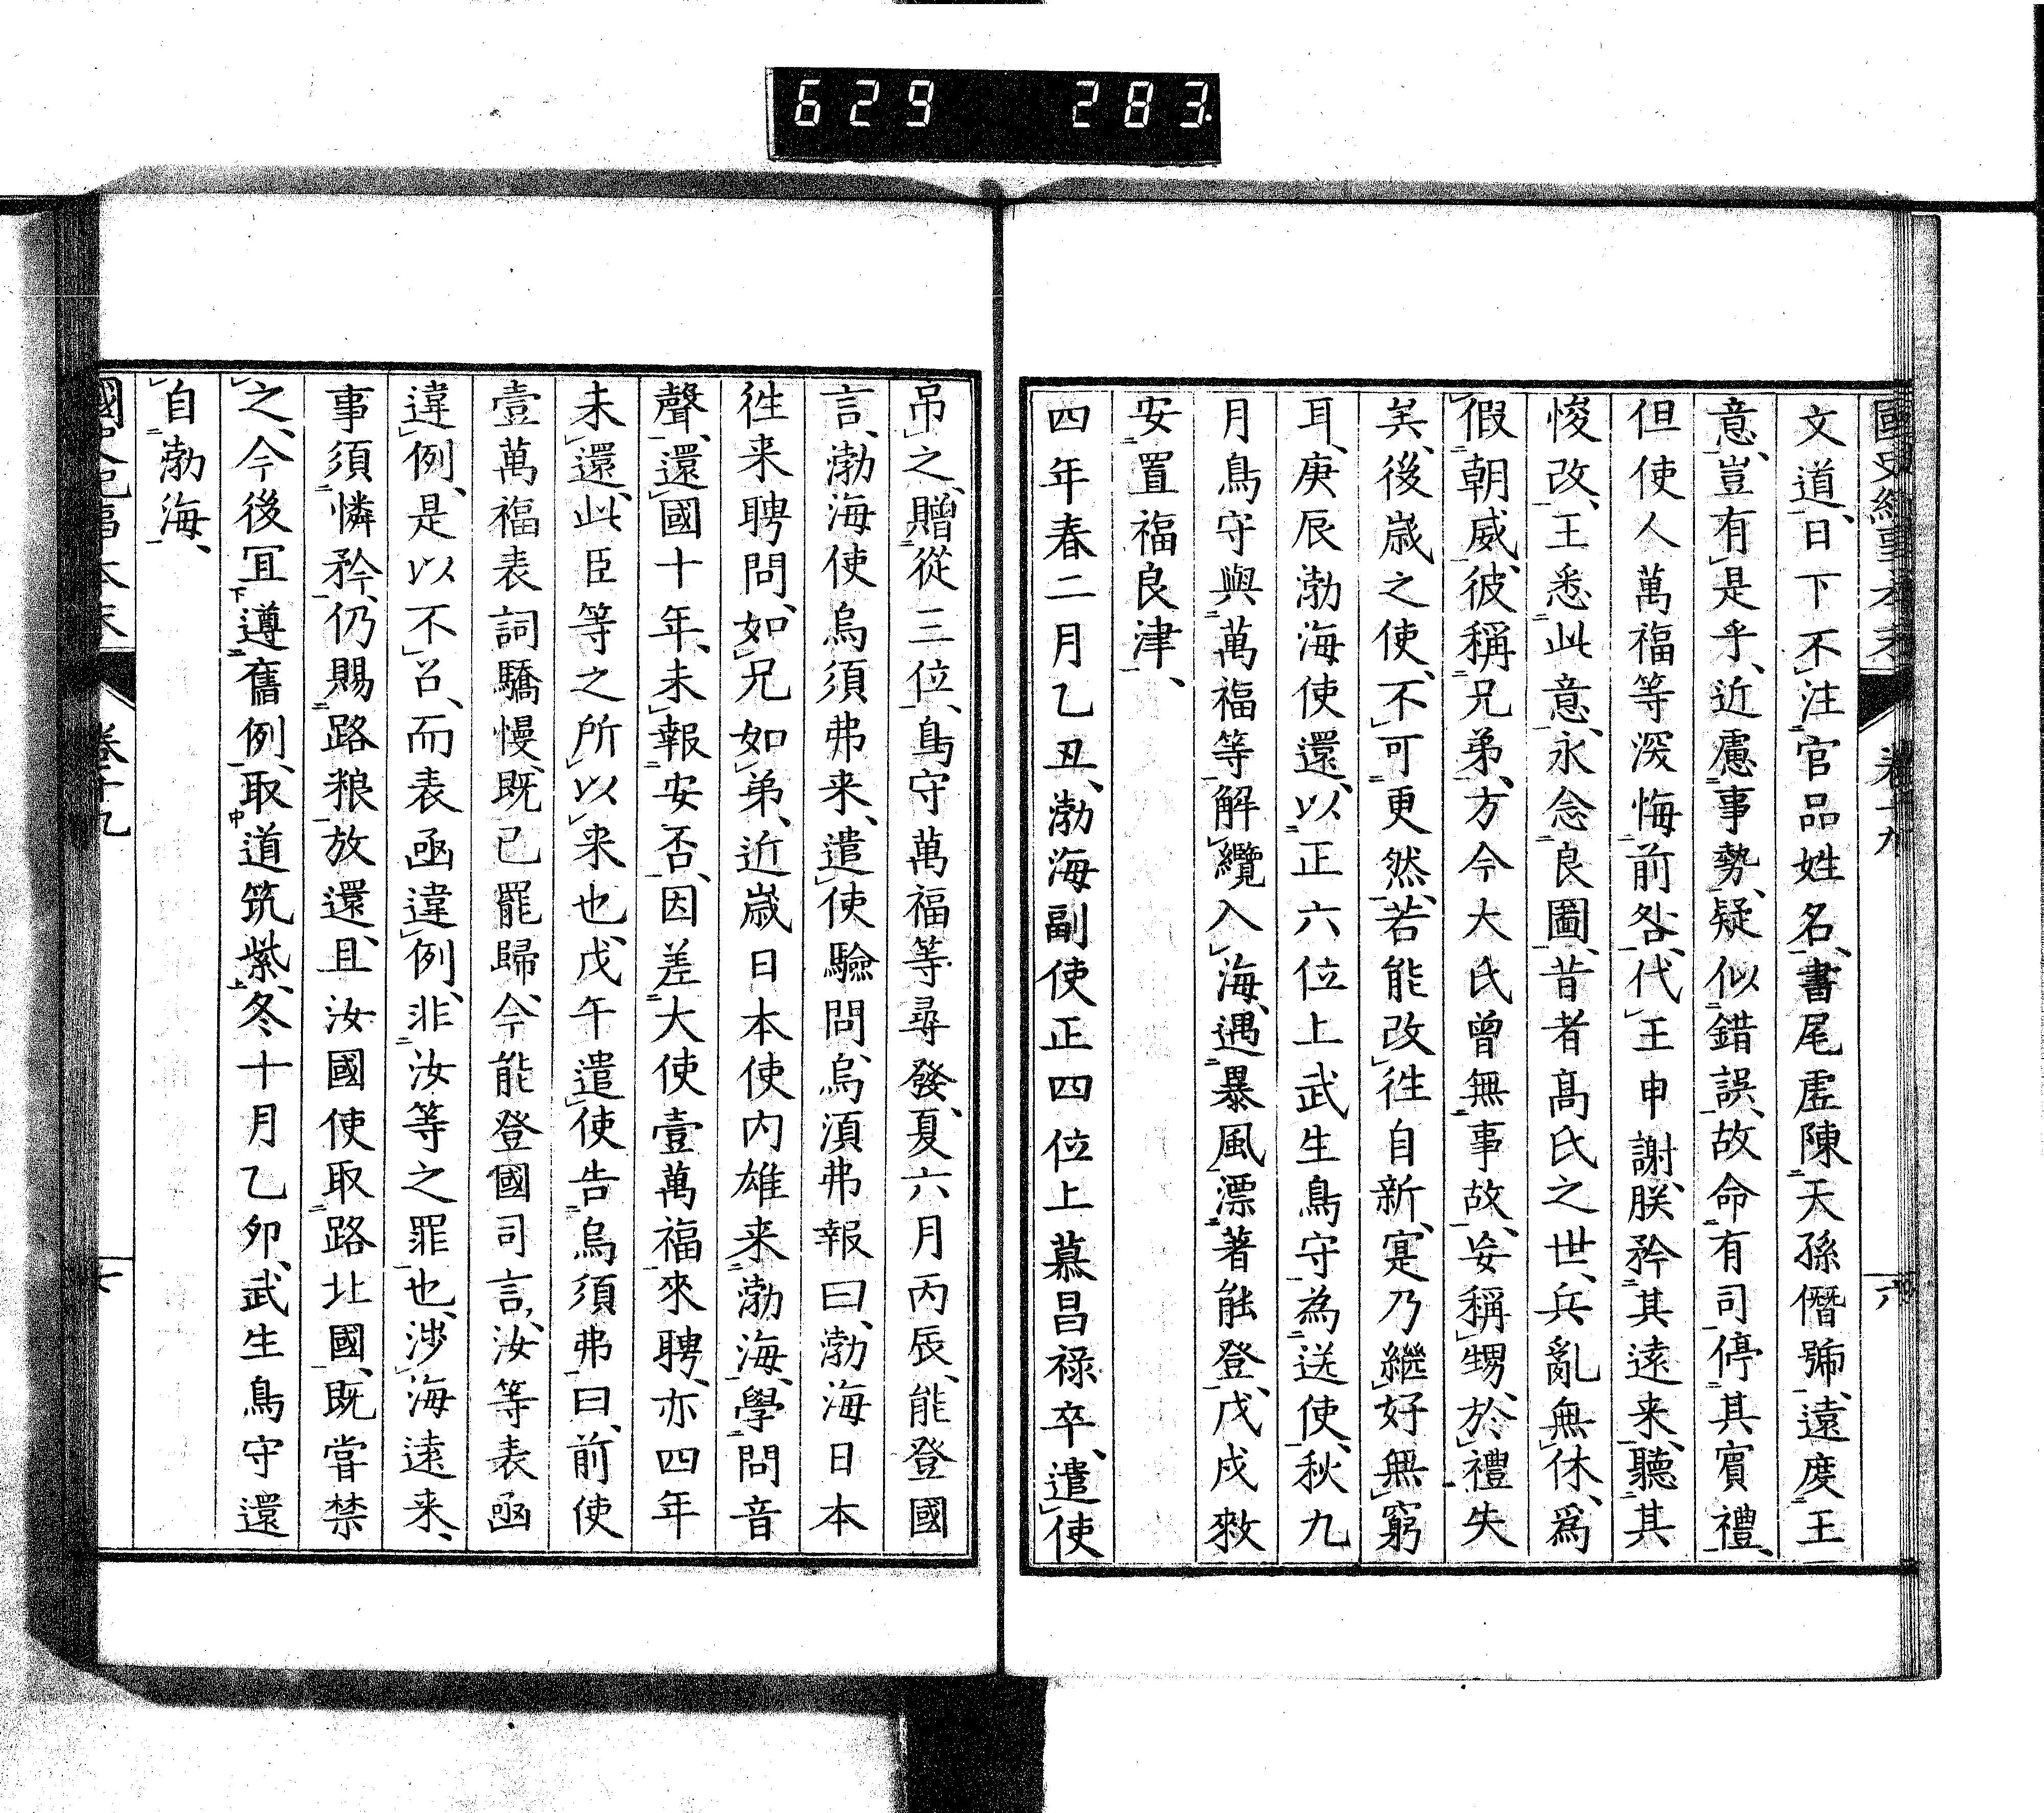 629 283
文道、日下不注官品姓名、書尾虛陳天孫僭號、遠度王
意、豈有是乎、近慮事勢、疑似錯誤、故命有司、停其賓禮、
但使人萬福等深悔前咎、代王申謝、朕矜其遠来、聽其
悛改、王悉此意、永念良圖、昔者高氏之世、兵亂無休、爲
假朝威、彼稱兄弟、方今大氏曾無事故、妄稱甥、於禮失
矣、後歳之使、不可更然、若能改徃自新、寔乃繼好無窮
耳、庚辰渤海使還、以正六位上武生鳥守為送使、秋九
月鳥守與萬福等解纜入海、遇暴風漂著能登、戊戌敕
安置福良津、
四年春二月乙丑、渤海副使正四位上慕昌禄卒、遣使
吊之、贈從三位、鳥守萬福等尋發、夏六月丙辰、能登國
言、渤海使烏須弗来、遣使驗問、烏湏弗報曰、渤海日本
徃来聘問、如兄如弟、近歳日本使内雄来渤海、學問音
聲、還國十年、未報安否、因差大使壹萬福來聘、亦四年
未還、此臣等之所以来也、戊午遣使告烏須弗曰、前使
壹萬福表詞驕慢、既已罷歸、今能登國司言、汝等表函
違例、是以不召、而表函違例、非汝等之罪也、渉海遠来、
事須憐矜、仍賜路粮放還、且汝國使取路北國、既甞禁
之、今後冝遵舊例、取道筑紫、冬十月乙卯、武生鳥守還
自渤海、